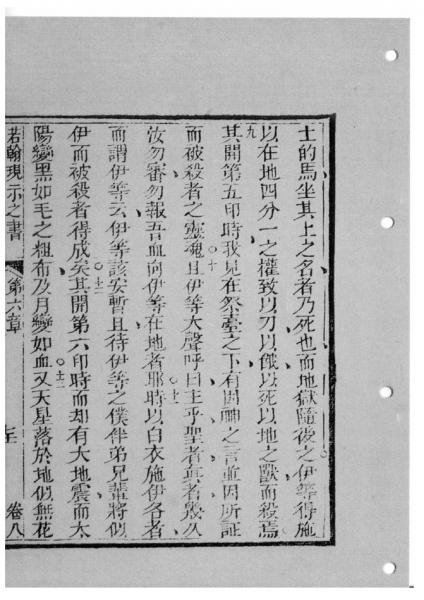 士的馬坐其上之名者乃死也而地獄隨後之伊等得施
以在地四分一之權致以刀以餓以死以地之獸而殺焉
九其開第五印時我見在祭臺之下有因神之言並因所証
而被殺者之靈魂且○十伊等大聲呼曰主乎聖者真者幾久
汝勿審勿報吾血向伊等在地者耶○十一時以白衣施伊各者
而謂伊等云伊等該安暫且待伊等之僕伴弟兄輩將似
伊而被殺者得成矣○十二其開第六印時而却有大地震而太
陽變黑如毛之粗布及月變如血○十三又天星落於地似無花
若翰現示之書 第六章 七 卷八